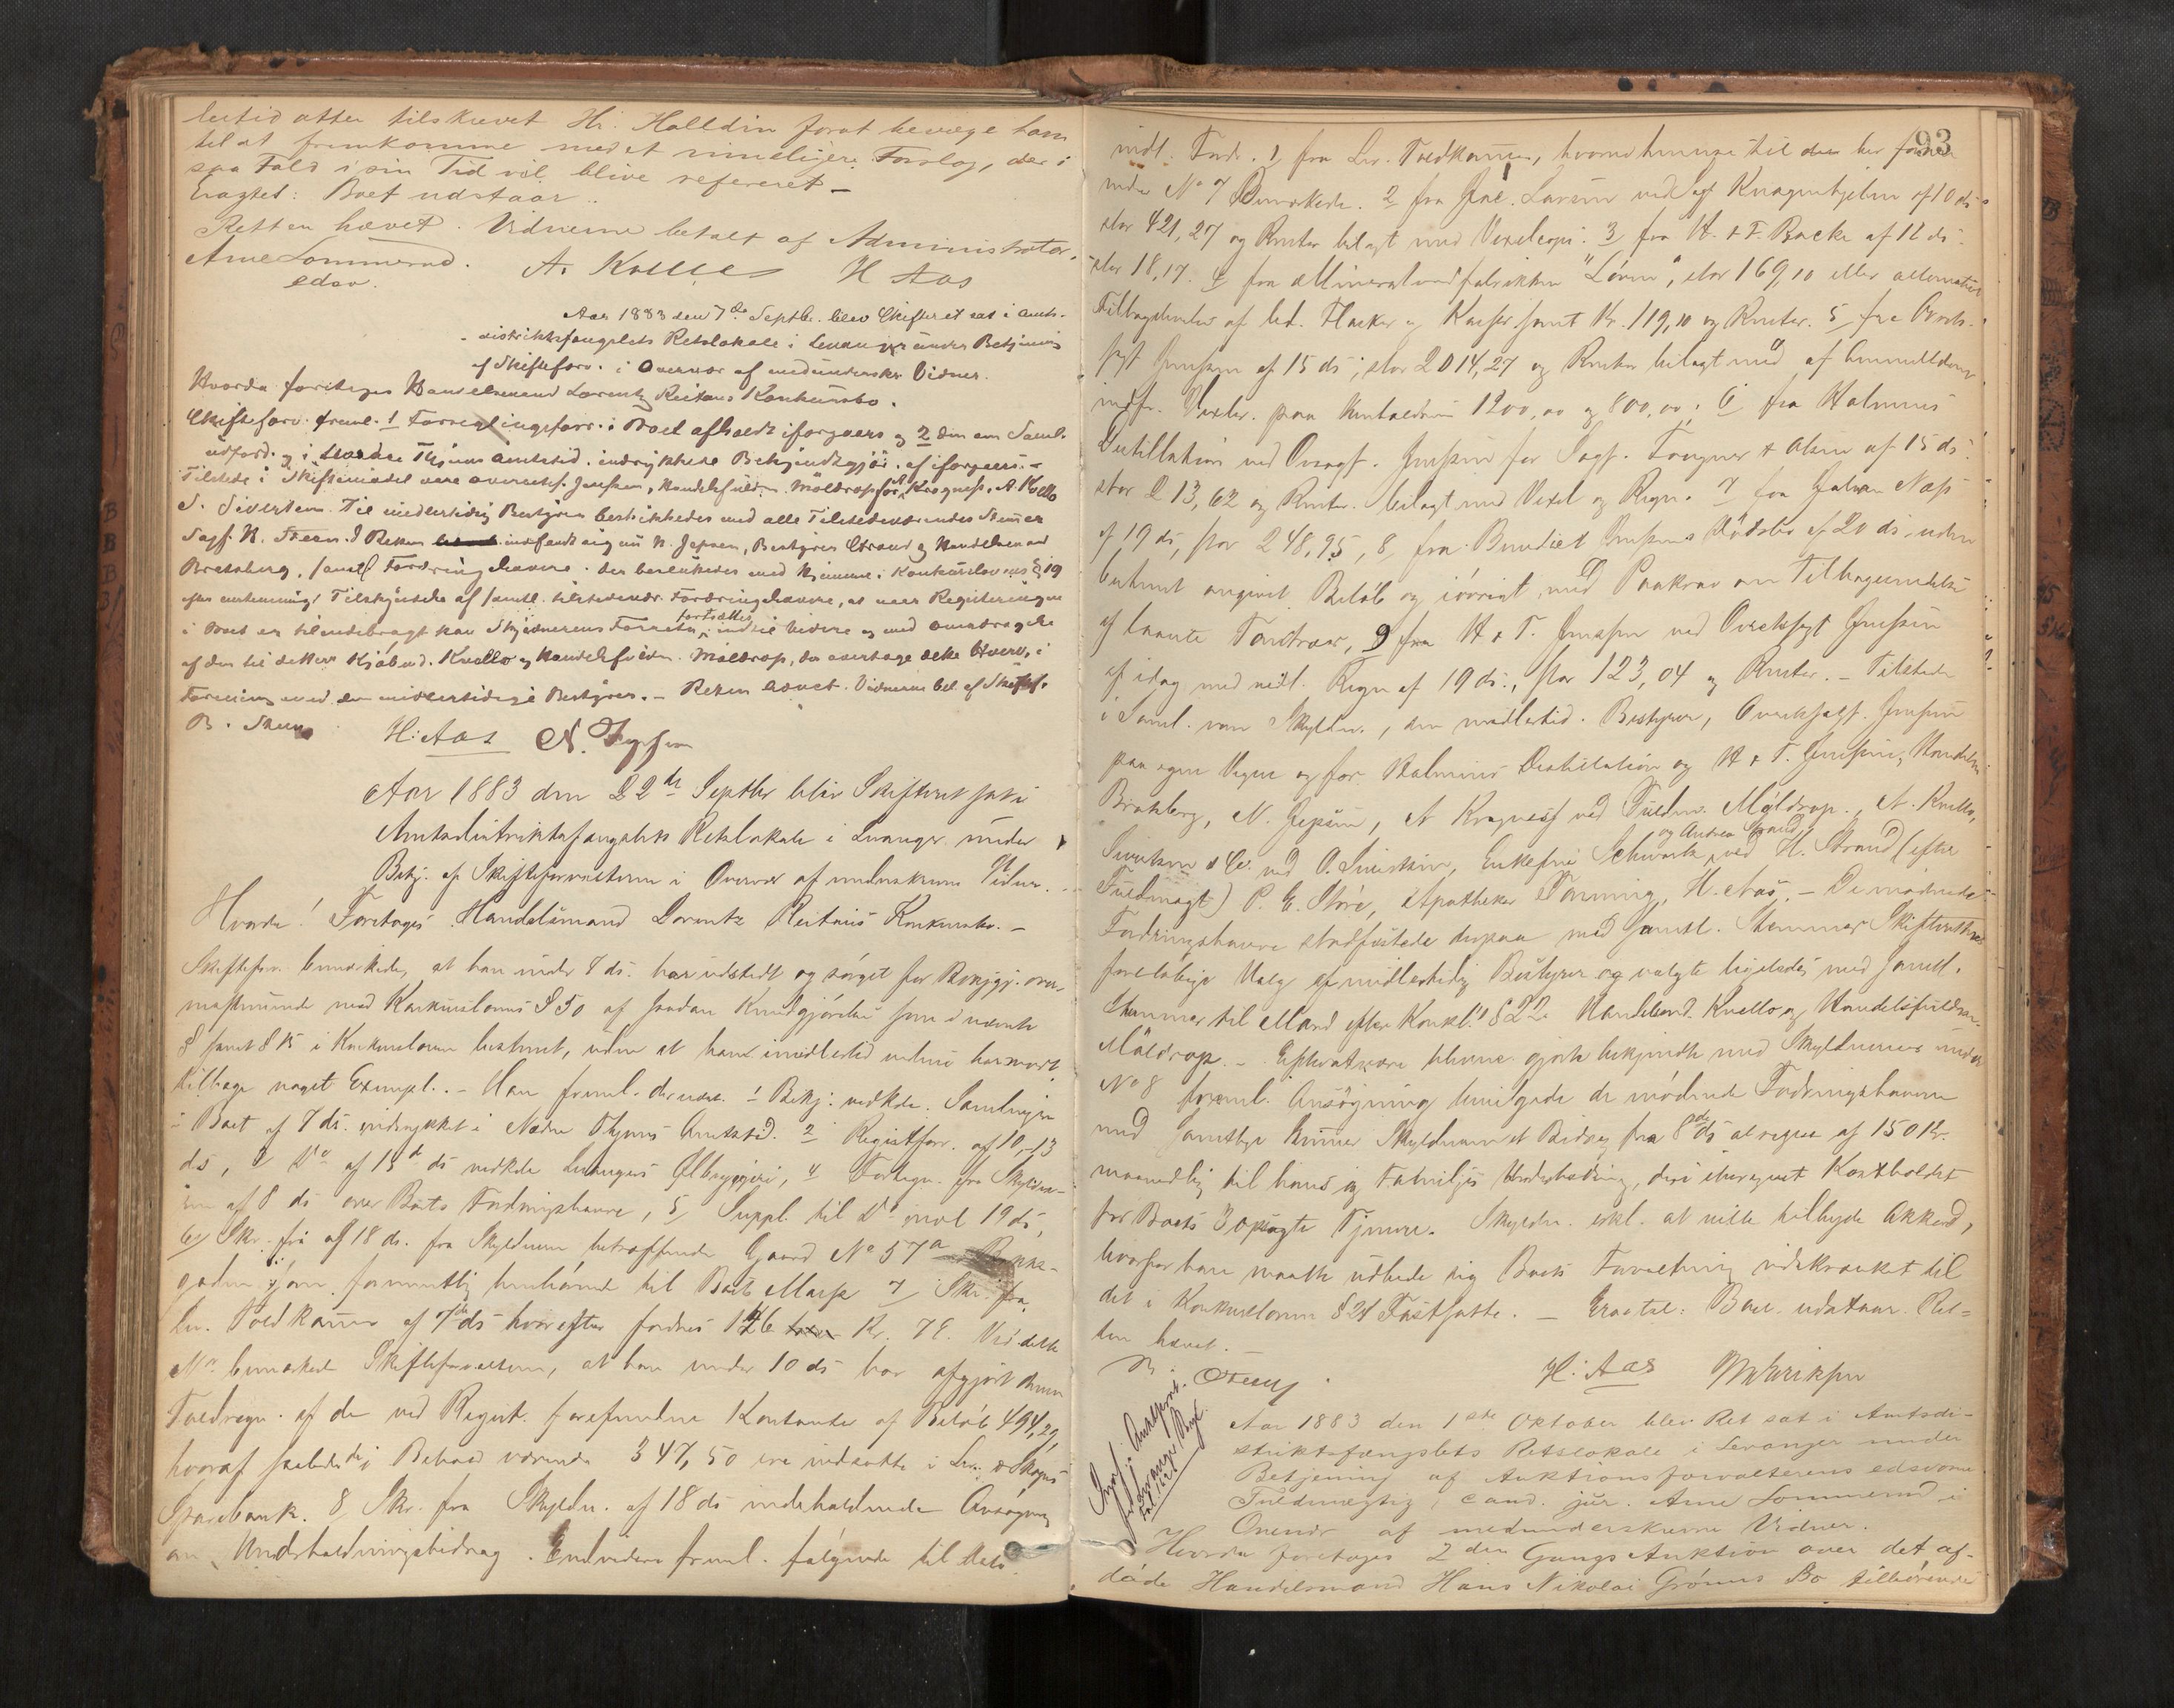 lertid atter tilskrevet Hr. Halldin forat bevæge ham
til at fremkomme med et rimeligere Forslag, der i
saa Fald i sin Tid vil blive refereret –
Eragtet: Boet udstaar..
Retten hævet. Vidnerne betalt af Administrator.
Arne Sommerud. A. Kvello H Aas
edsv.
Aar 1883 den 7de Septbr. blev Skifteret sat i Amts-
distriktsfængslets Retslokale i Levanger under Betjening
af Skifteforv. i Overvær af medunderskr. Vidner.
Hvorda foretoges Handelsmand Lorentz Reitans Konkursbo.
Skifteforv. freml. 1 Forseglingsforr. i Boet afholdt iforgaars og 2 den om Saml.
udfærd. og i Nordre Thjems Amtstid. indrykkede Bekjendtgjør. af iforgaars. –
Tilstede i Skiftesamlet vare Overretss. Jenssen, Handelsfuldm. Møldrop for A Kragness, A. Kvello
S. Sivertsen. Til midlertidig Bestyrer beskikkedes med alle Tilstedeværendes Stemmer
Sagf. N. Steen. I Retten indfandt sig nu N. Jepsen, Bestyrer Strand og Handelsmand
Bratsberg, samtl Fordringshavere. Der besluttedes med Hjemmel i Konkurslovens § 19
efter enstemmigt Tilskyndelse af samtl. tilstedevær. Fordringshavere, at naar Registeringen
i Boet er tilendebragt kan Skyldnerens Forretn. fortsættes indtil videre og med
af den til dettes Kjøbmd. Kvello og Handelsfuldm. Møldrop, der overtage dette Hverv, i
Forening med den midlertidige Bestyrer. – Retten hævet. Vidnerne bet. af Skiftef.
B. Steen H: Aas N. Jepsen
Aar 1883 den 22de Septbr blev Skifteret sat i
Amtsdistriktsfængslets Retslokale i Levanger under
Betj. af Skifteforvalteren i Overvær af medunderskrevne Vidner.
Hvorda! Foretoges Handelsmand Lorentz Reitans Konkursbo. –
Skifteforv. bemærkede, at han under 8 ds. har udstedt og sørget for Bekjgj. over-
ensstemmende med Konkurslovens § 50 af saadan Kundgjørelse som i nævnte
§ samt § 15 i Konkursloven bestemt, uden at han imidlertid endnu har modt.
tilbage noget Exempl. – Han freml. dernæst 1 Bekj. vedkde. Samlingen
i Boet af 7 ds. indrykket i Nordre Thjems Amtstid. 2 Registforr. af 10–13
ds, 3 Do af 13d ds vedkde Levangers Ølbryggeri, 4 Fortegn. fra Skyldne-
ren af 8 ds over Boets Fordringshavere, 5 Suppl. til Do modt 19 ds,
6 Skr. fra af 18 ds. fra Skyldneren betræffende Gaard No 57a
gaden som formentlig henhørende til Boets Masse 7 Skr. fra
Lev. Toldkammer af 7de ds hvorefter fordres 146 Kr. 78. Ved dette
No bemærkede Skifteforvalteren, at han under 10 ds har afgjort denne
Toldregn. af de ved Regist. forefundne Kontanter af Beløb 494,29,
hvoraf saaledes i Behold værende 347,50 ere indsatte i Lev. & Skogns
Sparebank. 8 Skr. fra Skyldn. af 18 ds indeholdende Ansøgning
om Underholdningsbidrag. Endvidere freml. følgende til dels
93
indl. Fordr. 1 fra Lev. Toldkammer, hvorom henvises til den her foran
under No 7 Bemærkede. 2 fra Jac. Larsen ved Sagf Knagenhjelm af 10 ds
stor 421,27 og Renter bilagt med Vexelcopi. 3 fra H. & F. Backe af 12 ds.
stor 18,17. 4 fra Mineralvandfabrikken "Løven", stor 169,10 eller alternativt
Tilbagelevelse af led. Flasker og Kasser samt Kr. 119,10 og Renter. 5 fra Overets-
sagf Jenssen af 15 ds; stor 2014,27 og Renter bilagt med af Anmelderen
indfr. Vexler. paa henholdsvis 1200,00 og 800,00; 6 fra Kalmens
Destillation ved Ovsagf. Jenssen for Sagf. Tangner & Olsen af 15 ds.
stor 213,62 og Renter. bilagt med Vexel og Regn. 7 fra Johan Næss
af 19 ds, stor 248,95, 8, fra Benedict Jenssens Dødsbo af 20 ds uden
bestemt angivet Beløb og iøvrigt med Paakrav om Tilbagesendelse
af laante Tøndvar, 9 fra H & T. Jenssen ved Overetssagf Jenssen
af idag med vedl. Regn af 19 ds., stor 123,04 og Renter. – Tilstede
i Saml. vare Skyldn., den midlertid. Bestyrer, Overetssagf. Jenssen
paa egne Vegne og for Kalmens Destillation og H & T. Jenssen, Handelsm.
Bratsberg, N. Jepsen, A Kragness ved Fuldm. Møldrop, A. Kvello,
Sivertsen & Co. ved O. Sivertsen, Enkefru Schwartz og Andrea Strand, ved H. Strand (efter
Fuldmagt) P. E. Støre, Apotheker Tanning, H. Aas. – De mødende
Fordringshavere stadfæstede derpaa med samtl. Stemmer Skifterettens
foreløbige Valg af midlertidig Bestyrer og valgte ligeledes med samtl.
Stemmer til Mænd efter Konkl.s § 22 Handelsmd. Kvello og Handelsfuldm.
Møldrop. – Efterat være bleven gjorte bekjendte med Skyldneren under
No 8 freml. Ansøgning bevilgede de mødende Fordringshavere
med samtlige Stemmer Skyldneren et Bidrag fra 8de ds at regne af 150 Kr.
maanedlig til hans og Families Underholdning, deri iberegnet Kostholdet
for Boets 3 opsagte Tjenere. Skyldn. erkl. at ville tilbyde Akkord,
hvorfor han maatte udbede sig Boets Forvaltning indskrænket til
det i Konkursloven § 24 Fastsatte. – Eragtet: Boet udstaar. Ret-
ten hævet. –
B. Steen H: Aas M Eriksen
Aar 1883 den 1ste Oktober blev Ret sat i Amtsdi-
striktsfængslets Retslokale i Levanger under
Betjening af Auktionsforvalterens edsvorne
Fuldmægtig, cand. jur. Arne Sommerud i
Overvær af medunderskrevne Vidner.
Hvorda foretoges 2den Gangs Auktion over det af-
døde Handelsmand Hans Nikolai Grønns Bo tilhørende